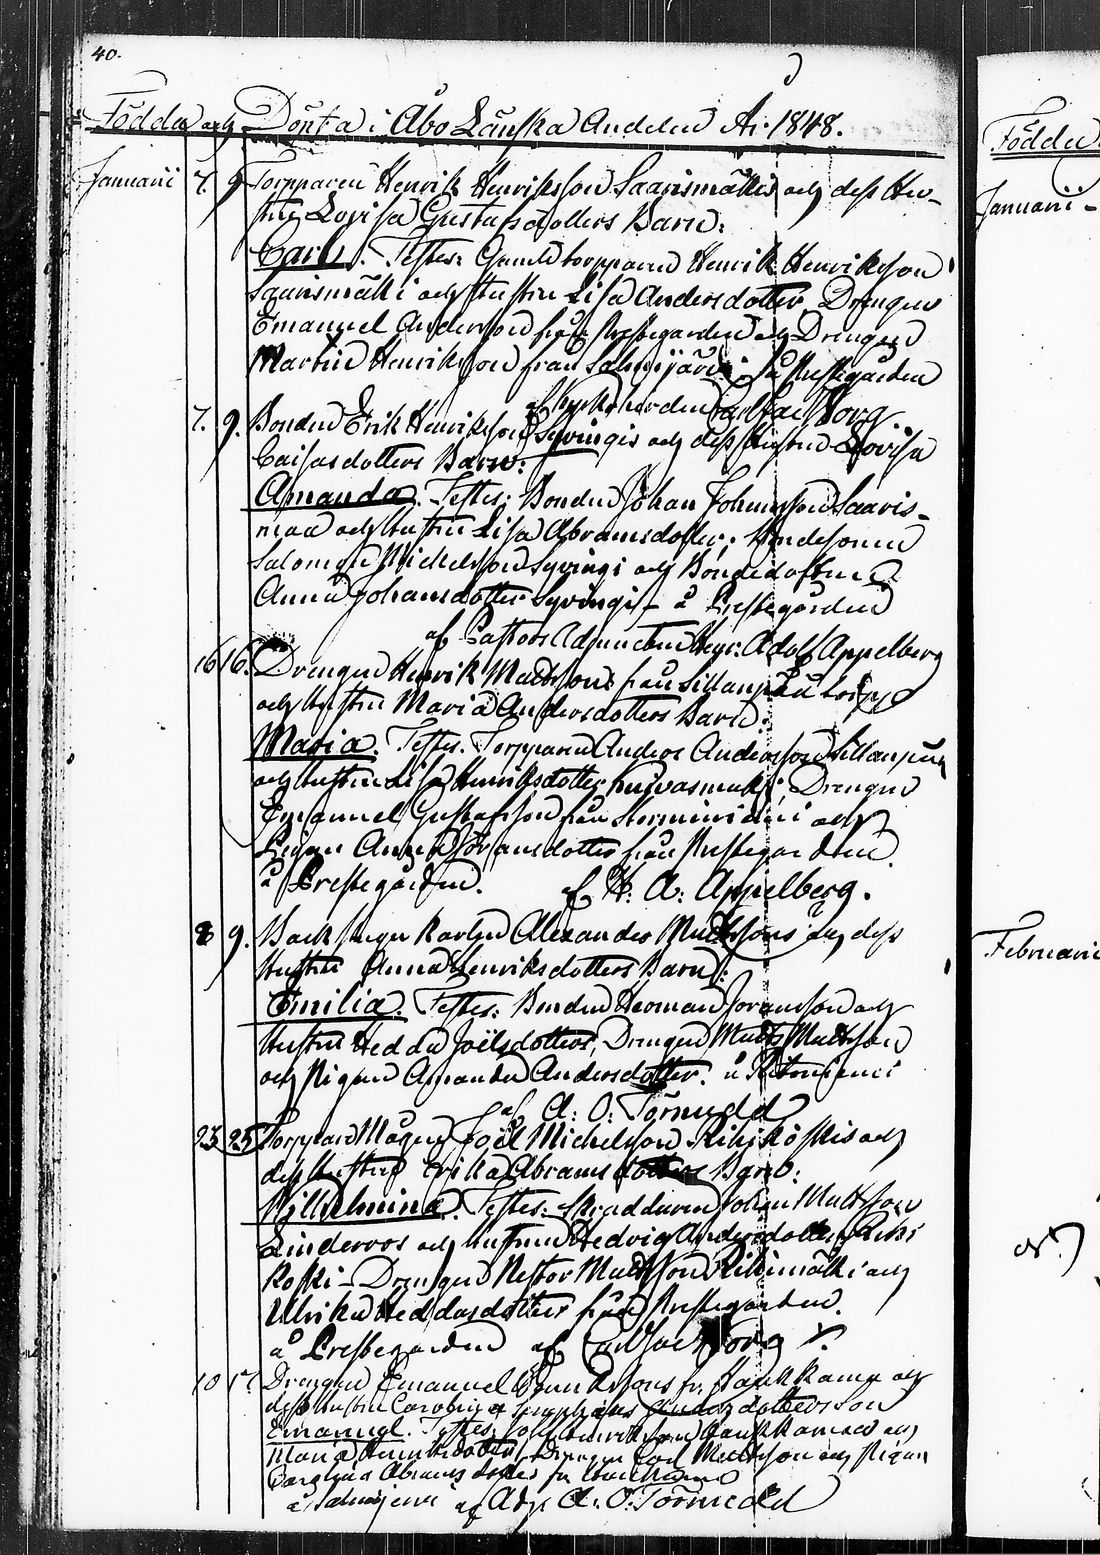 40.
Födde och Döpta i Åbo Länska Andelen År 1848.
Födde
Januarii 7. 9. Torpparen Henrik Henriksson Saarismäkis och dess Hu-
stru Lovisa Gustafsdotters Barn:
Carl. Testes: Gamle torpparen Henrik Henriksson
Saarismäki och Hustru Lisa Andersdotter, Drengen
Emanuel Andersson från Prestegården och Drengen
Martin Henriksson från Salmijärvi. på Prestegården
af Kyrkoherden Carl Isac Borg
7. 9. Bonden Erik Henriksson Syvingis och dess Hustru Lovisa
Caisasdotters Barn:
Amanda. Testes: Bonden Johan Johansson Saaris-
maa och Hustru Lisa Abramsdotter; Bondesonen
Salomon Michelsson Syvingi och Bondedottren
Anna Johansdotter Syvingi – å Prestegården
af Pastors Adjuncten Adolf Appelberg
16 16. Drengen Henrik Mattssons från Sillanpää
och Hustru Maria Andersdotters Barn:
Maria. Testes. Torpparen Anders Andersson Sillanpää
och Hustru Lisa Henriksdotter Kuivasmäki; Drengen
Emanuel Gustafsson från och
Pigan Anna Göransdotter från Prestegården.
å Prestegården. af A: Appelberg.
8 9. Backstugu Karlen Alexander Mattssons och dess
Hustru Anna Henriksdotters Barn:
Emilia. Testes: Bonden Herman Joransson och
Hustru Hedda Joëlsdotter, Drengen Matts Mattsson
och Pigan Amanda Andersdotter. å
af A: O: Törnudd
25 25 Torppare Mågen Joël Michelsson Rihikoskis och
dess Hustru Erika Abramsdotters Barn:
Wilhelmina. Testes: Skräddaren Johan Mattsson
Linderoos och Hustrun Hedvig Andersdotter Rihi
koski – Drengen Nestor Mattsson Rihimäki och
Ulrika Heddasdotter från Prestegården.
å Prestegården af Carl Isac Borg
10 17. Drengen Emanuel Henrikssons fr. Haukkamaa och
dess Hustru Carolina Andersdotters son
Emanuel. Testes: Haukkamaa och
Maria Henriksdotter, Drengen Carl Mattsson och Pigan
Carolina Abramsdotter fr.
å Salmijervi af Adj. A: O: Törnudd
Januarii –
Februarii